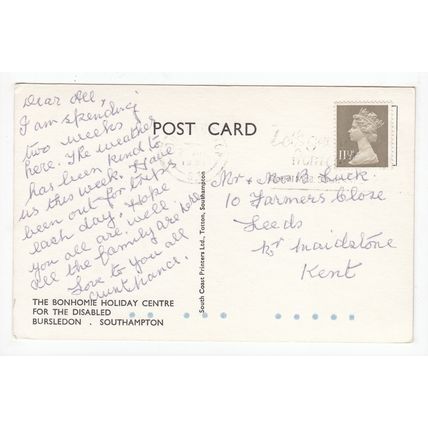 Dear All,
I am spending
two weeks
here. The weather
has been kind to
us this week. Have
been out for trips
each day. Hope
you all are well.
All the family are here
Love to you all
POST CARD
11½P
Mr & Mrs B. Luck.
10 Farmers Close
Leeds
Nr Maidstone
Kent
South Coast Printers Ltd., Totton, Southampton
THE BONHOMIE HOLIDAY CENTRE
FOR THE DISABLED
BURSLEDON . SOUTHAMPTON